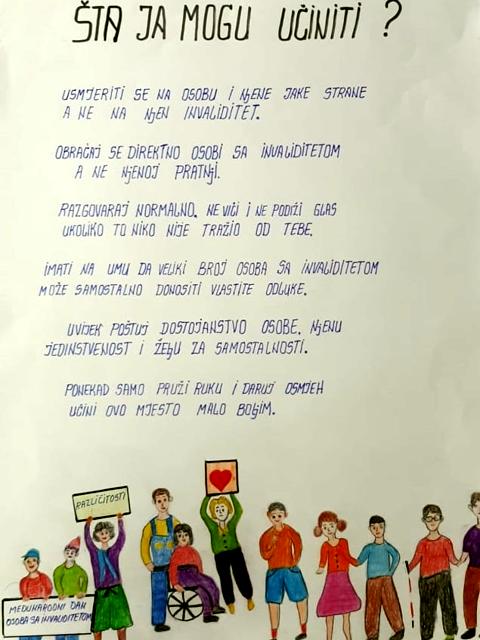 ŠTA JA MOGU UČINITI ?
USMJERITI SE NA OSOBU I NJENE JAKE STRANE
A NE NA NJEN INVALIDITET.
OBRAĆAJ SE DIREKTNO OSOBI SA INVALIDITETOM
A NE NJENOJ PRATNJI.
RAZGOVARAJ NORMALNO. NE VIČI I NE PODIŽI GLAS
UKOLIKO TO NIKO NIJE TRAŽIO OD TEBE.
IMATI NA UMU DA VELIKI BROJ OSOBA SA INVALIDITETOM
MOŽE SAMOSTALNO DONOSITI VLASTITE ODLUKE.
UVIJEK POŠTUJ DOSTOJANSTVO OSOBE, NJENU
JEDINSTVENOST I ŽELJU ZA SAMOSTALNOSTI.
PONEKAD SAMO PRUŽI RUKU I DARUJ OSMJEH
UČINI OVO MJESTO MALO BOLJIM.
RAZLIČITOSTI
MEĐUNARODNI DAN
OSOBA SA INVALIDITETOM